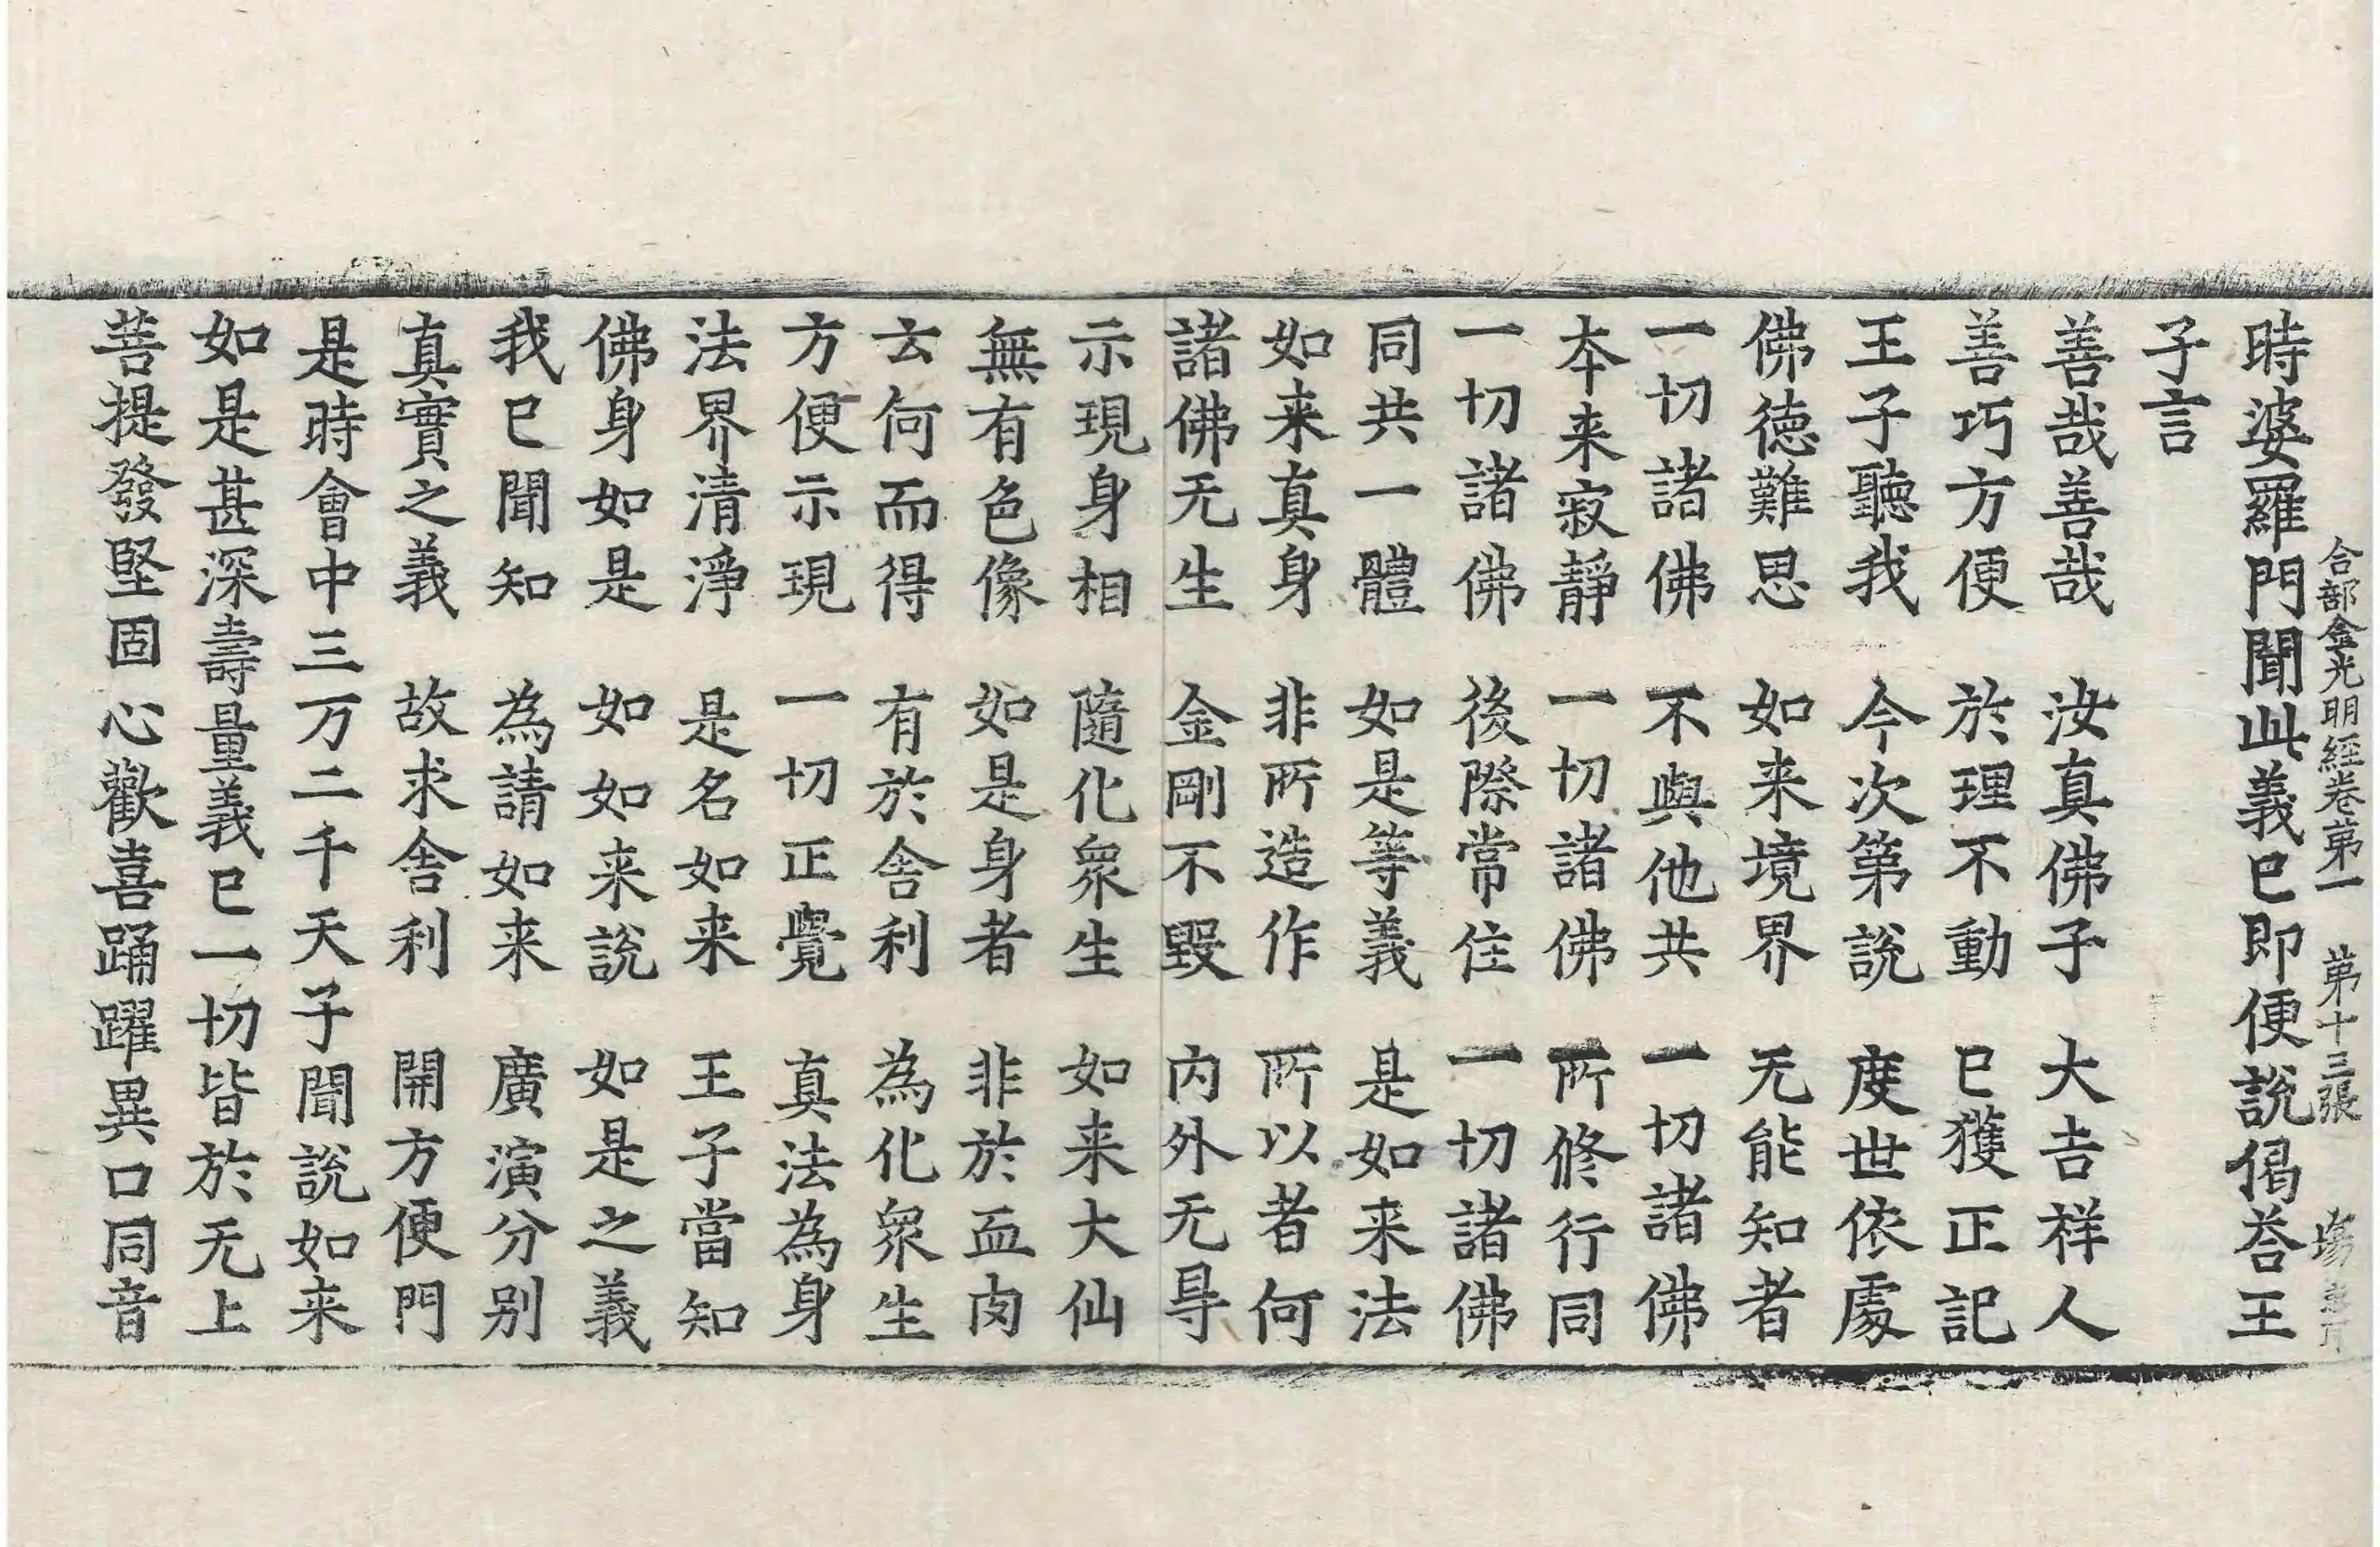 合部金光明經卷第一　第十三張　塲
時婆羅門聞此義已即便說偈荅王
子言
善哉善哉　汝真佛子　大吉祥人
善巧方便　於理不動　已獲正記
王子聽我　今次第說　度世依處
佛德難思　如来境界　无能知者
一切諸佛　不與他共　一切諸佛
本来寂靜　一切諸佛　所修行同
一切諸佛　後際常住　一切諸佛
同共一體　如是等義　是如来法
如来真身　非所造作　所以者何
諸佛无生　金剛不毀　内外无㝵
示現身相　隨化衆生　如来大仙
無有色像　如是身者　非於血肉
云何而得　有於舍利　為化衆生
方便示現　一切正覺　真法為身
法界清淨　是名如来　王子當知
佛身如是　如如来說　如是之義
我已聞知　為請如来　廣演分别
真實之義　故求舍利　開方便門
是時會中三万二千天子聞說如来
如是甚深壽量義已一切皆於无上
菩提發堅固心歡喜踊躍異口同音